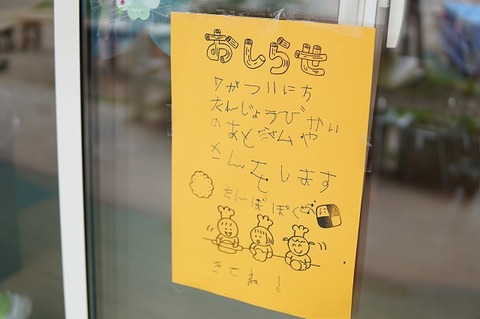 おしらせ
7がつ11にち
たんじょうびかい
のあとさムや
さんでします
たんぽぽぐみ
きてね!